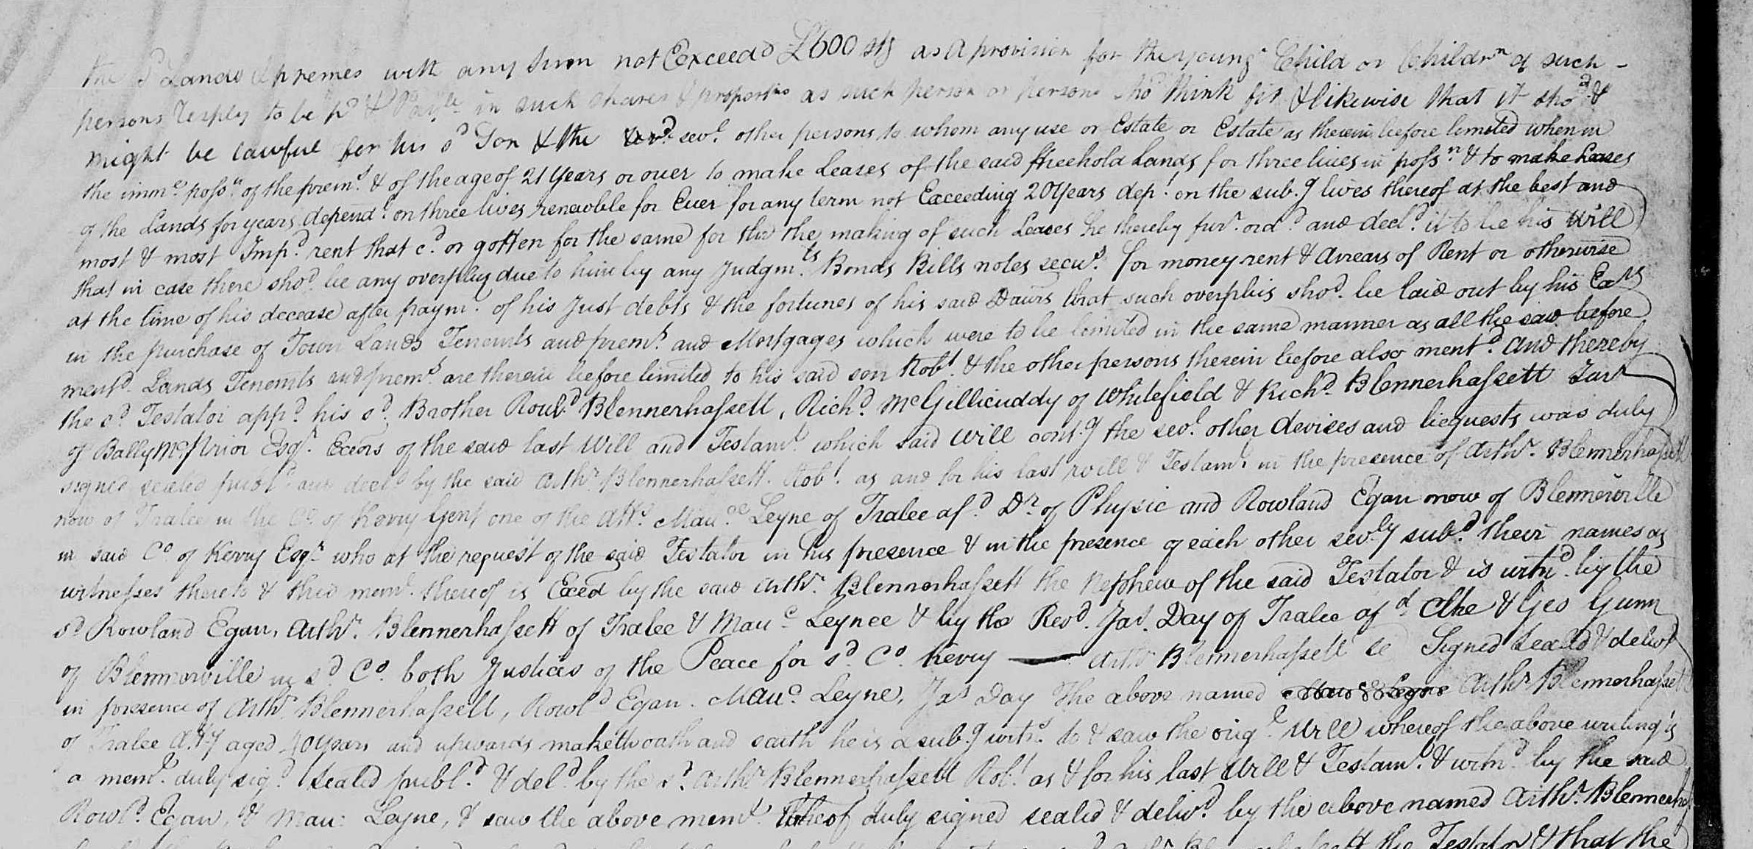 the sd Lands & premes with any Sum not Exceedg £600 stg as a provision for the young.r Child or Childrn of such
persons resply to be pd & Payle in such shares & proportns as such person or persons shod think fit & likewise that it shod &
might be lawful for his sd Son & the sevl. other persons to whom any use or Estate or Estate as therein before limited when in
the imme possn of the premes & of the age of 21 Years or over to make Leases of the said ffreehold Lands for three lives in possn & to make Leases
of the Lands for years dependt on three lives renewable for Ever for any term not Exceeding 20 Years dept on the subg lives thereof at the best and
most & most Impd rent that cd or gotten for the same for the making of such Leases he thereby furr ordd and decld it to be his Will
that in case there shod be any overplus due to him by any Judgmts Bonds Bills notes secus for money rent & Arrears of Rent or otherwise
at the time of his decease after paymt of his Just debts & the fortunes of his said Daurs that such overplus shod be laid out by his Exrs
in the purchase of Town Lands Tenemts and premes and Mortgages which were to be limited in the same manner as all the said before
mentd Lands Tenemts and premes are therein before limited to his said son Robt & the other persons therein before also mentd And thereby
the sd Testator appd his sd Brother Rowd Blennerhassett, Richd McGillicuddy of Whitefield & Richd Blennerhassett
of Esqr Exors of the said last Will and Testamt which said Will contg the sevl other devises and bequests was duly
signed sealed publd and decld by the said Arthr Blennerhassett as and for his last will & Testamt in the presence of Arthr Blennerhassett
now of Tralee in the Co. of Kerry Gent one of the Attys Maure Leyne of Tralee afd Dr of Physic and Rowland Egan now of Blennerville
in said Co of Kerry Esqr who at the request of the said Testator in his presence & in the presence of each other sevly subd their names as
witnesses thereto & this meml thereof is Exed by the said Arthr Blennerhassett the Nephew of the said Testator & is witnd by the
sd Rowland Egan, Arthr Blennerhassett of Tralee & Mauce Leynee & by the Revd Jas Day of Tralee afd Clke & Geo Gunn
of Blennerville in sd Co. both Justices of the Peace for sd Co. Kerry — Arthr Blennerhassett Signed Sealed & delivd
in presence of Arthr Blennerhassett, Rowld Egan. Mauc Leyne, Jas Day The above named Arthr Blennerhassett
of Tralee aged 40 years and upwards maketh oath and saith he is a subg witns to & saw the origl Will whereof the above writing is
a meml duly sigd sealed publd & deld by the sd Arthr Blennerhassett as & for his last Will & Testamt & witnd by the said
Rowld Egan, & Mau: Leyne, & saw the above meml thereof duly signed sealed & delivd by the above named Arthr Blennerhassett
the Testator & that the